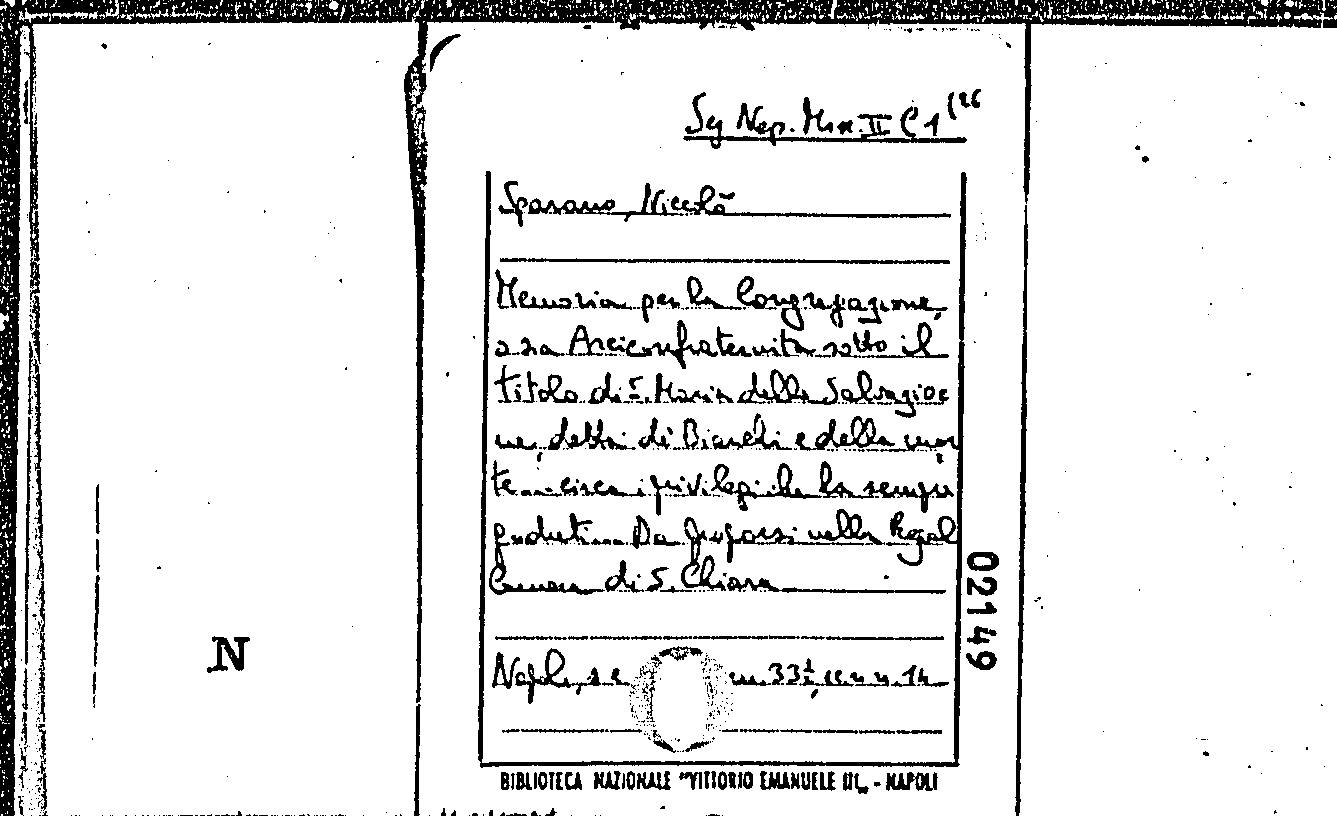 Sez Nap. Misc. II C 1 (26
Sparano, Niccolò
Memoria per la Congregazione,
o sia Arciconfraternita sotto il
titolo di S. Maria della Salvazio
ne, detta di Bianchi e della mor
te... circa i privilegi che ha sempre
goduti... Da proporsi nella Regal
Camera di S. Chiara
02149
N
Napoli, s.e. cm. 33½, cc. n. n. 14
BIBLIOTECA NAZIONALE "VITTORIO EMANUELE III„ - NAPOLI